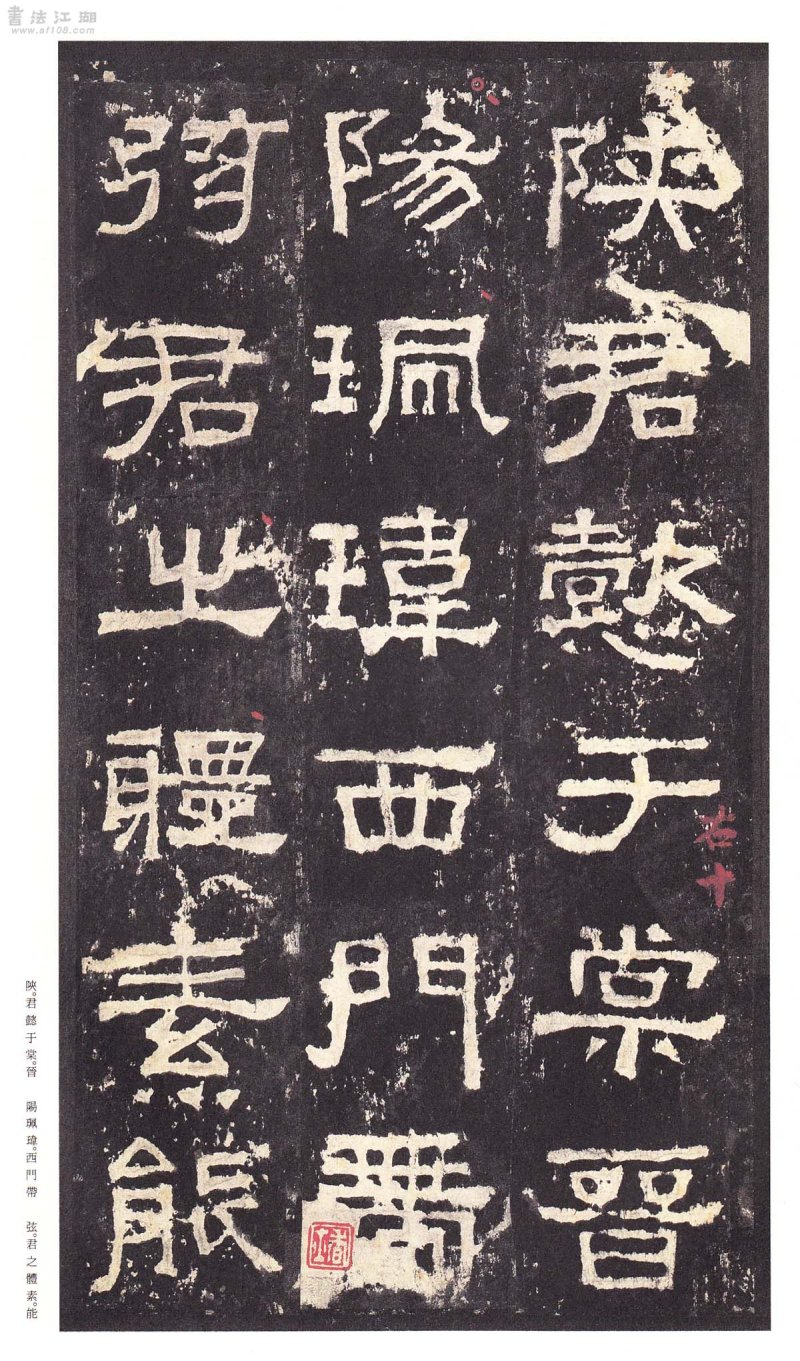 書法江湖
www.af108.com
陝君懿于棠晉
陽珮瑋西門帶
弦君之體素能
右十
陝。君懿于棠。晉 陽珮瑋。西門帶 弦。君之體素。能